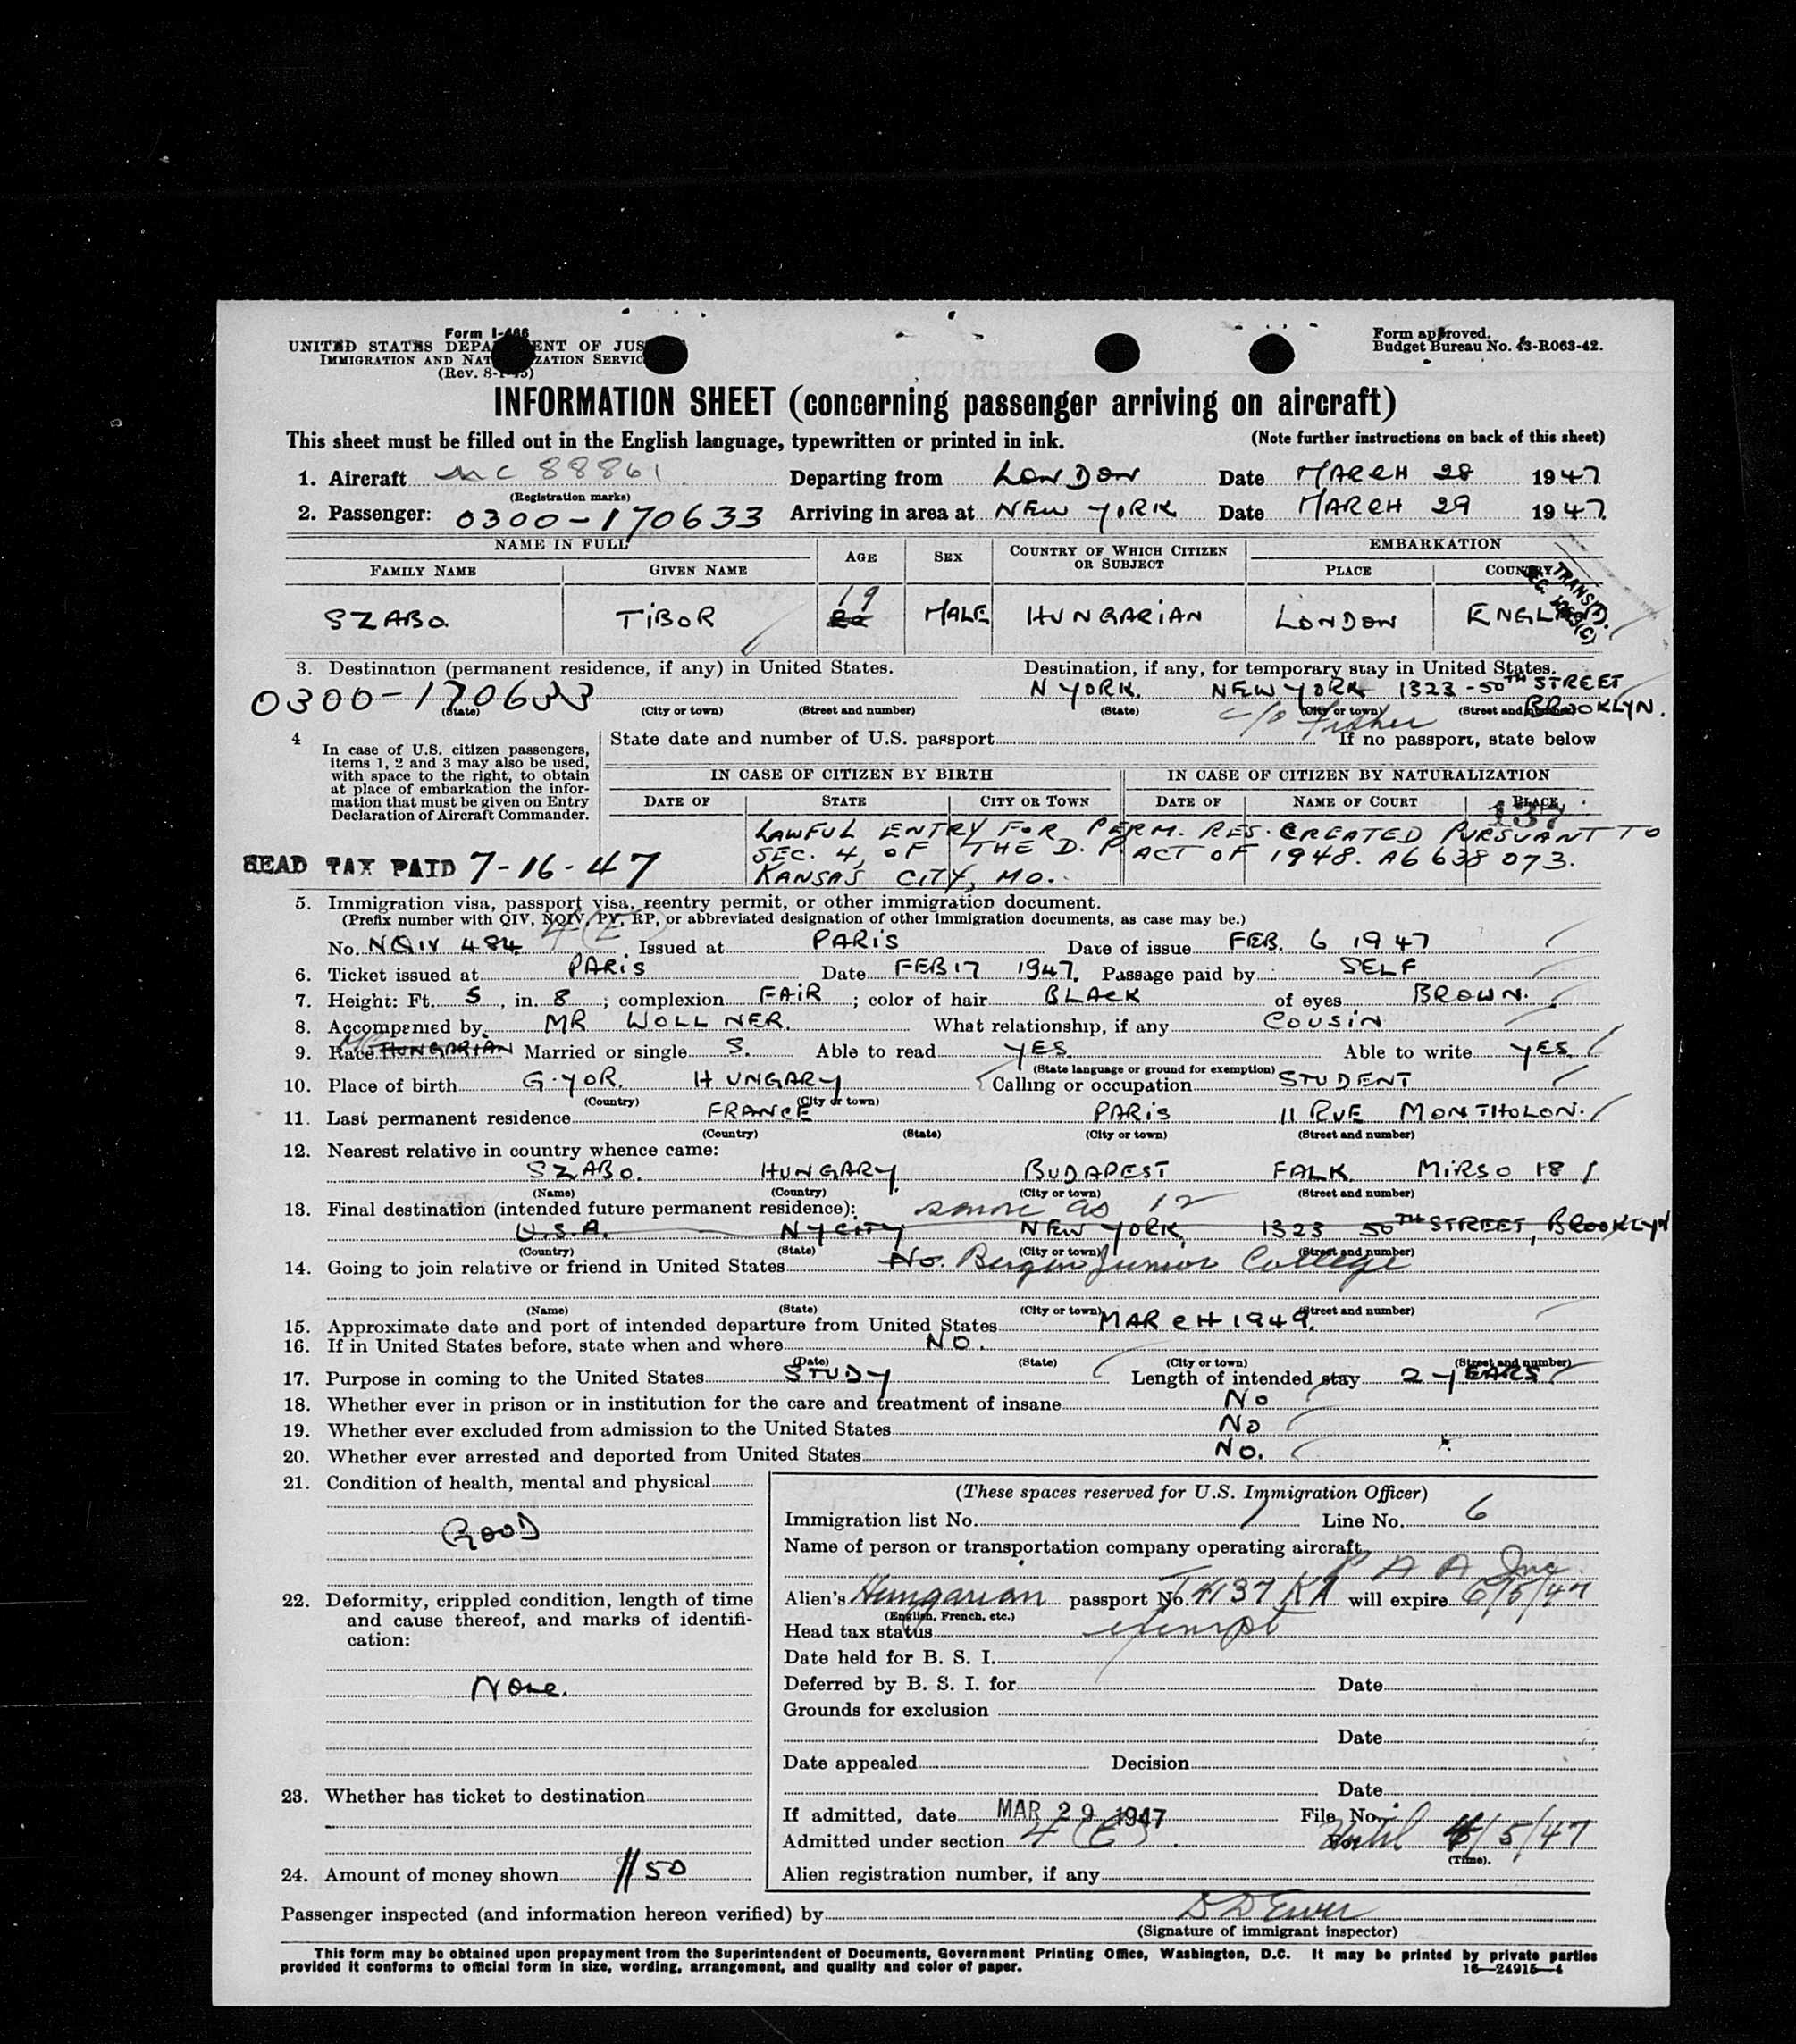 Form I-466
UNITED STATES DEPARTMENT OF JUSTICE
IMMIGRATION AND NATURALIZATION SERVICE
(Rev. 8-1-45)
Form approved.
Budget Bureau No. 43-R063-42.
INFORMATION SHEET (concerning passenger arriving on aircraft)
This sheet must be filled out in the English language, typewritten or printed in ink. (Note further instructions on back of this sheet)
1. Aircraft NC 88861 Departing from LONDON Date MARCH 28 1947
(Registration marks)
2. Passenger: 0300-170633 Arriving in area at NEW YORK Date MARCH 29 1947.
NAME IN FULL AGE SEX COUNTRY OF WHICH CITIZEN OR SUBJECT EMBARKATION
FAMILY NAME GIVEN NAME PLACE COUNTRY
TRANSIT.
SZABO. TIBOR 19 MALE HUNGARIAN LONDON ENGLAND.
3. Destination (permanent residence, if any) in United States. Destination, if any, for temporary stay in United States.
0300-170633 N YORK. NEW YORK 1323-50TH STREET
(State) (City or town) (Street and number) (State) (City or town) (Street and number) BROOKLYN.
c/o Fisher
4 In case of U.S. citizen passengers, items 1, 2 and 3 may also be used, with space to the right, to obtain at place of embarkation the information that must be given on Entry Declaration of Aircraft Commander.
State date and number of U.S. passport If no passport, state below
IN CASE OF CITIZEN BY BIRTH IN CASE OF CITIZEN BY NATURALIZATION
DATE OF STATE CITY OR TOWN DATE OF NAME OF COURT PLACE
137
LAWFUL ENTRY FOR PERM. RES. CREATED PURSUANT TO
SEC. 4, OF THE D. P ACT OF 1948. A6 638 073.
KANSAS CITY, MO.
HEAD TAX PAID 7-16-47
5. Immigration visa, passport visa, reentry permit, or other immigration document.
(Prefix number with QIV, NQIV, PV, RP, or abbreviated designation of other immigration documents, as case may be.)
4(E)
No. NQIV 484. Issued at PARIS Date of issue FEB. 6 1947
6. Ticket issued at PARIS Date FEB 17 1947. Passage paid by SELF
7. Height: Ft. 5, in. 8; complexion FAIR; color of hair BLACK of eyes BROWN.
8. Accompanied by MR WOLLNER. What relationship, if any COUSIN
9. Race HUNGARIAN Married or single S. Able to read YES. Able to write YES
(State language or ground for exemption)
10. Place of birth GYOR. HUNGARY Calling or occupation STUDENT
(Country) (City or town)
11. Last permanent residence FRANCE PARIS 11 RUE MONTHOLON.
(Country) (State) (City or town) (Street and number)
12. Nearest relative in country whence came:
SZABO. HUNGARY. BUDAPEST FALK MIRSO 18
(Name) (Country) (City or town) (Street and number)
13. Final destination (intended future permanent residence): same as 12
U.S.A. NY CITY NEW YORK, 1323 50TH STREET, BROOKLYN
(Country) (State) (City or town) (Street and number)
14. Going to join relative or friend in United States No. Bergen Junior College
(Name) (State) (City or town) (Street and number)
15. Approximate date and port of intended departure from United States MARCH 1949.
16. If in United States before, state when and where NO.
(Date) (State) (City or town) (Street and number)
17. Purpose in coming to the United States STUDY Length of intended stay 2 YEARS
18. Whether ever in prison or in institution for the care and treatment of insane No
19. Whether ever excluded from admission to the United States No
20. Whether ever arrested and deported from United States No.
21. Condition of health, mental and physical
GOOD
22. Deformity, crippled condition, length of time and cause thereof, and marks of identification:
None.
23. Whether has ticket to destination
24. Amount of money shown 50
(These spaces reserved for U.S. Immigration Officer)
Immigration list No. 1 Line No. 6
Name of person or transportation company operating aircraft
P A A Inc.
Alien's Hungarian passport No. will expire 6/5/47
(English, French, etc.)
Head tax status exempt
Date held for B. S. I.
Deferred by B. S. I. for Date
Grounds for exclusion
Date
Date appealed Decision
Date
If admitted, date MAR 29 1947 File No.
Admitted under section 4(E) Until /5/47
(Time).
Alien registration number, if any
Passenger inspected (and information hereon verified) by
(Signature of immigrant inspector)
This form may be obtained upon prepayment from the Superintendent of Documents, Government Printing Office, Washington, D.C. It may be printed by private parties
provided it conforms to official form in size, wording, arrangement, and quality and color of paper. 16—24915-4